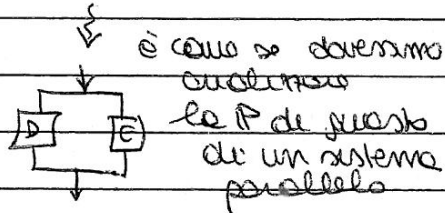 è come se dovessimo
analizzare
la P di guasto
D E di un sistema
parallelo